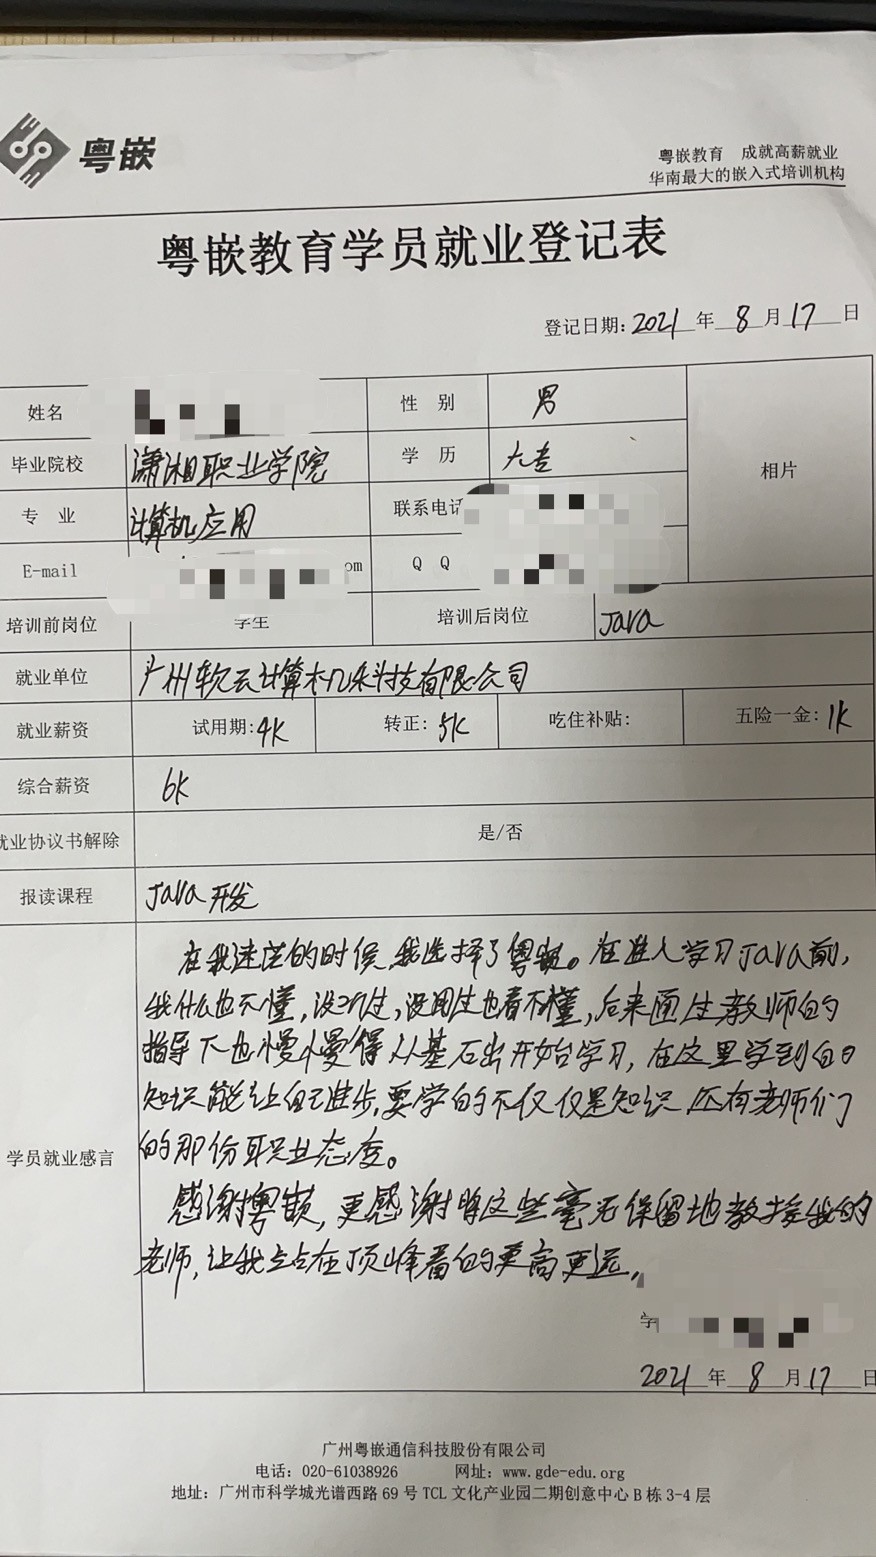 粤嵌
粤嵌教育 成就高薪就业
华南最大的嵌入式培训机构
粤嵌教育学员就业登记表
登记日期:2021年8月17日
姓名 性 别 男
毕业院校 潇湘职业学院 学 历 大专
相片
专 业 计算机应用 联系电话
E-mail om Q Q
培训前岗位 学生 培训后岗位 Java
就业单位 广州软云计算机科技有限公司
就业薪资 试用期:4K 转正:5K 吃住补贴: 五险一金:1K
综合薪资 6K
就业协议书解除 是/否
报读课程 Java开发
学员就业感言
在我迷茫的时候,我选择了粤嵌。在进入学习Java前,
我什么也不懂,没学过,没闻过也看不懂,后来通过教师的
指导下也慢慢得从基石出开始学习,在这里学到的
知识能让自己进步,要学的不仅仅是知识 还有老师们
的那份职业态度。
感谢粤嵌,更感谢将这些毫无保留地教授我的
老师,让我站在顶峰看的更高更远,
学
2021年8月17日
广州粤嵌通信科技股份有限公司
电话:020-61038926 网址:www.gde-edu.org
地址:广州市科学城光谱西路69号TCL文化产业园二期创意中心B栋3-4层